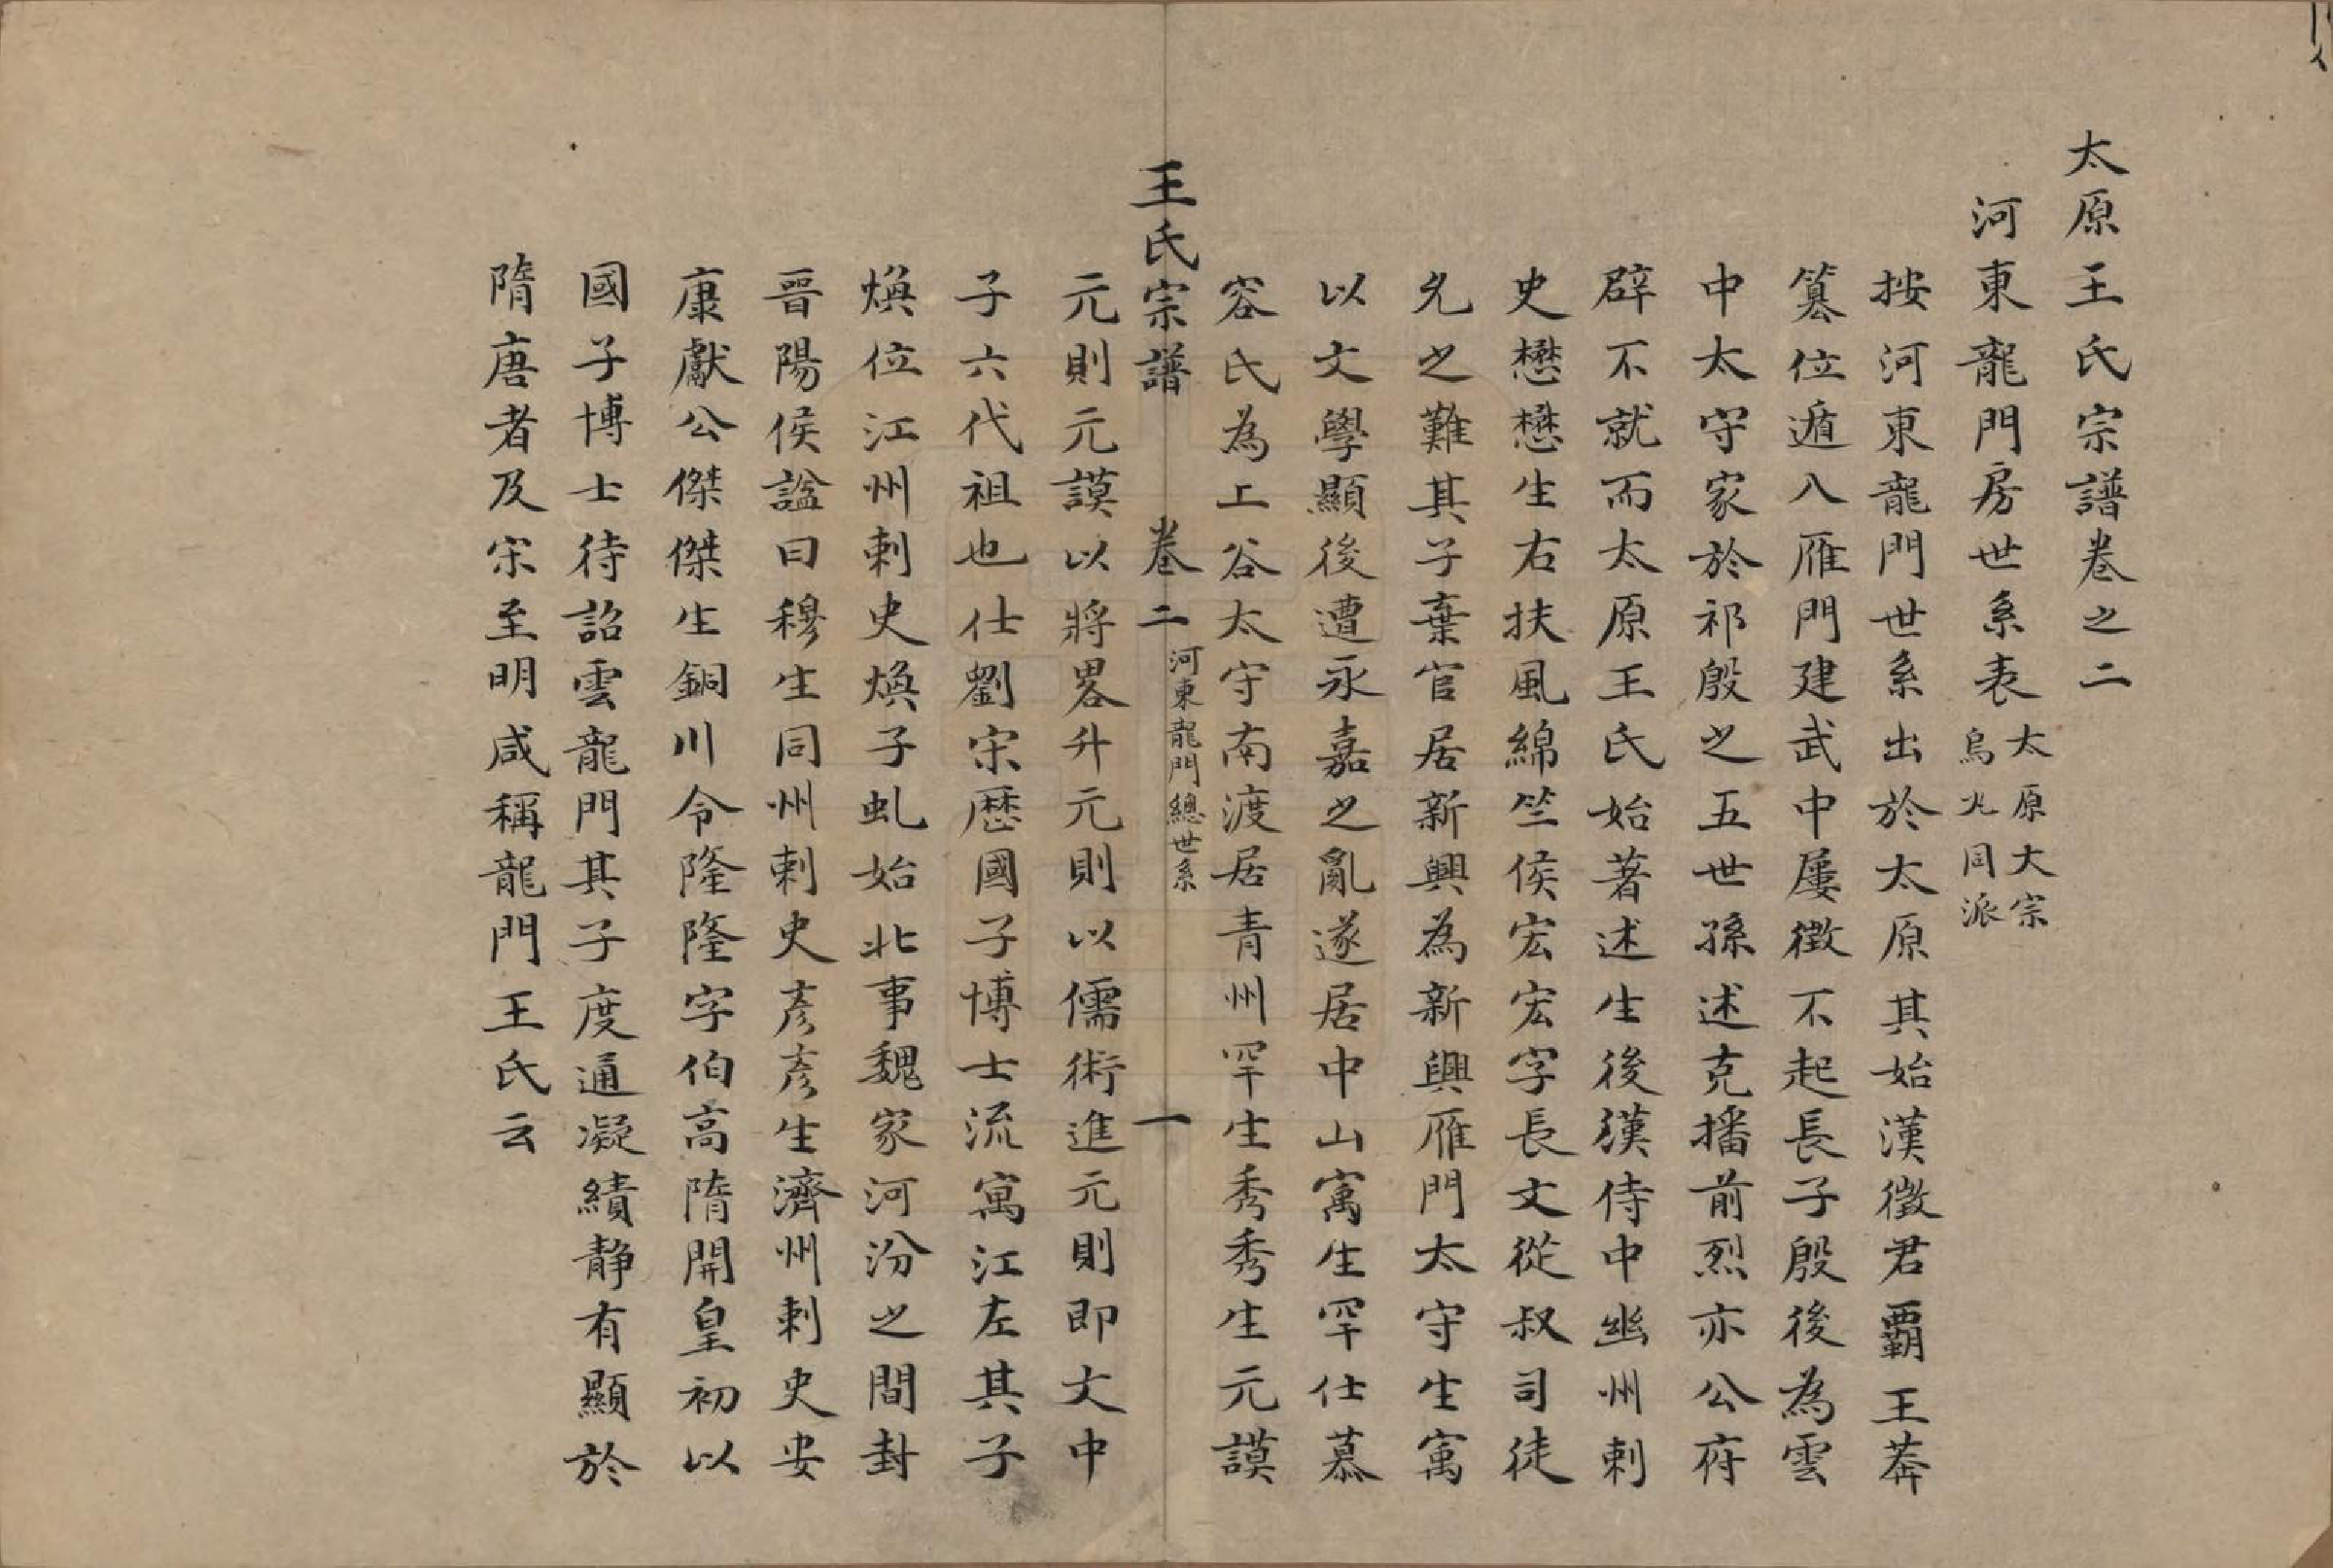 太原王氏宗譜卷之二
河東龍門房世系表 太原大宗烏丸同派
按河東龍門世系出於太原其始漢徵君覇王莽
篡位遁入雁門建武中屢徵不起長子殷後為雲
中太守家於祁殷之五世孫述克播前烈亦公府
辟不就而太原王氏始著述生後漢侍中幽州刺
史懋懋生右扶風綿竺侯宏宏字長文從叔司徒
允之難其子棄官居新興為新興雁門太守生寓
以文學顯後遭永嘉之亂遂居中山寓生罕仕慕
容氏為上谷太守南渡居青州罕生秀秀生元謨
王氏宗譜 卷二 河東龍門總世系 一
元則元謨以將畧升元則以儒術進元則即文中
子六代祖也仕劉宋歷國子博士流寓江左其子
煥位江州刺史煥子虬始北事魏家河汾之間封
晋陽侯諡曰穆生同州刺史彥彥生濟州刺史安
康獻公傑傑生銅川令隆隆字伯高隋開皇初以
國子博士待詔雲龍門其子度通凝績静有顯於
隋唐者及宋至明咸稱龍門王氏云